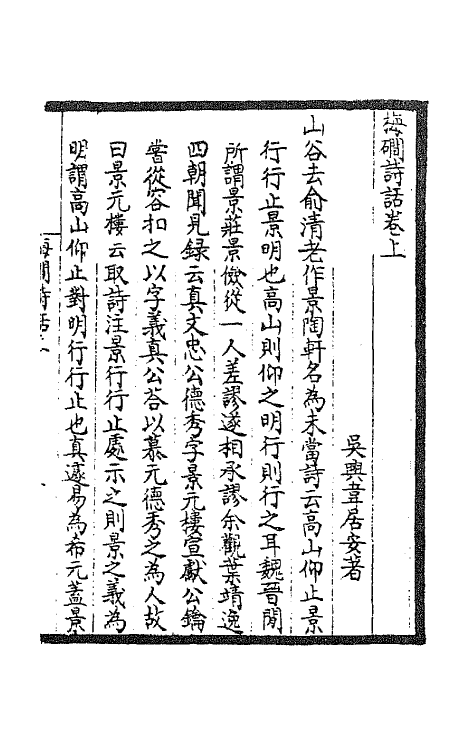 梅磵詩話卷上
吳興韋居安著
山谷去俞清老作景陶軒名為未當詩云高山仰止景
行行止景明也高山則仰之明行則行之耳魏晉間
所謂景莊景儉從一人差謬遂相承謬余觀葉靖逸
四朝聞見録云真文忠公德秀字景元樓宣獻公鑰
嘗從容扣之以字義真公荅以慕元德秀之為人故
曰景元樓云取詩注景行行止處示之則景之義為
明謂高山仰止對明行行止也真遽易為希元盖景
梅磵詩話上